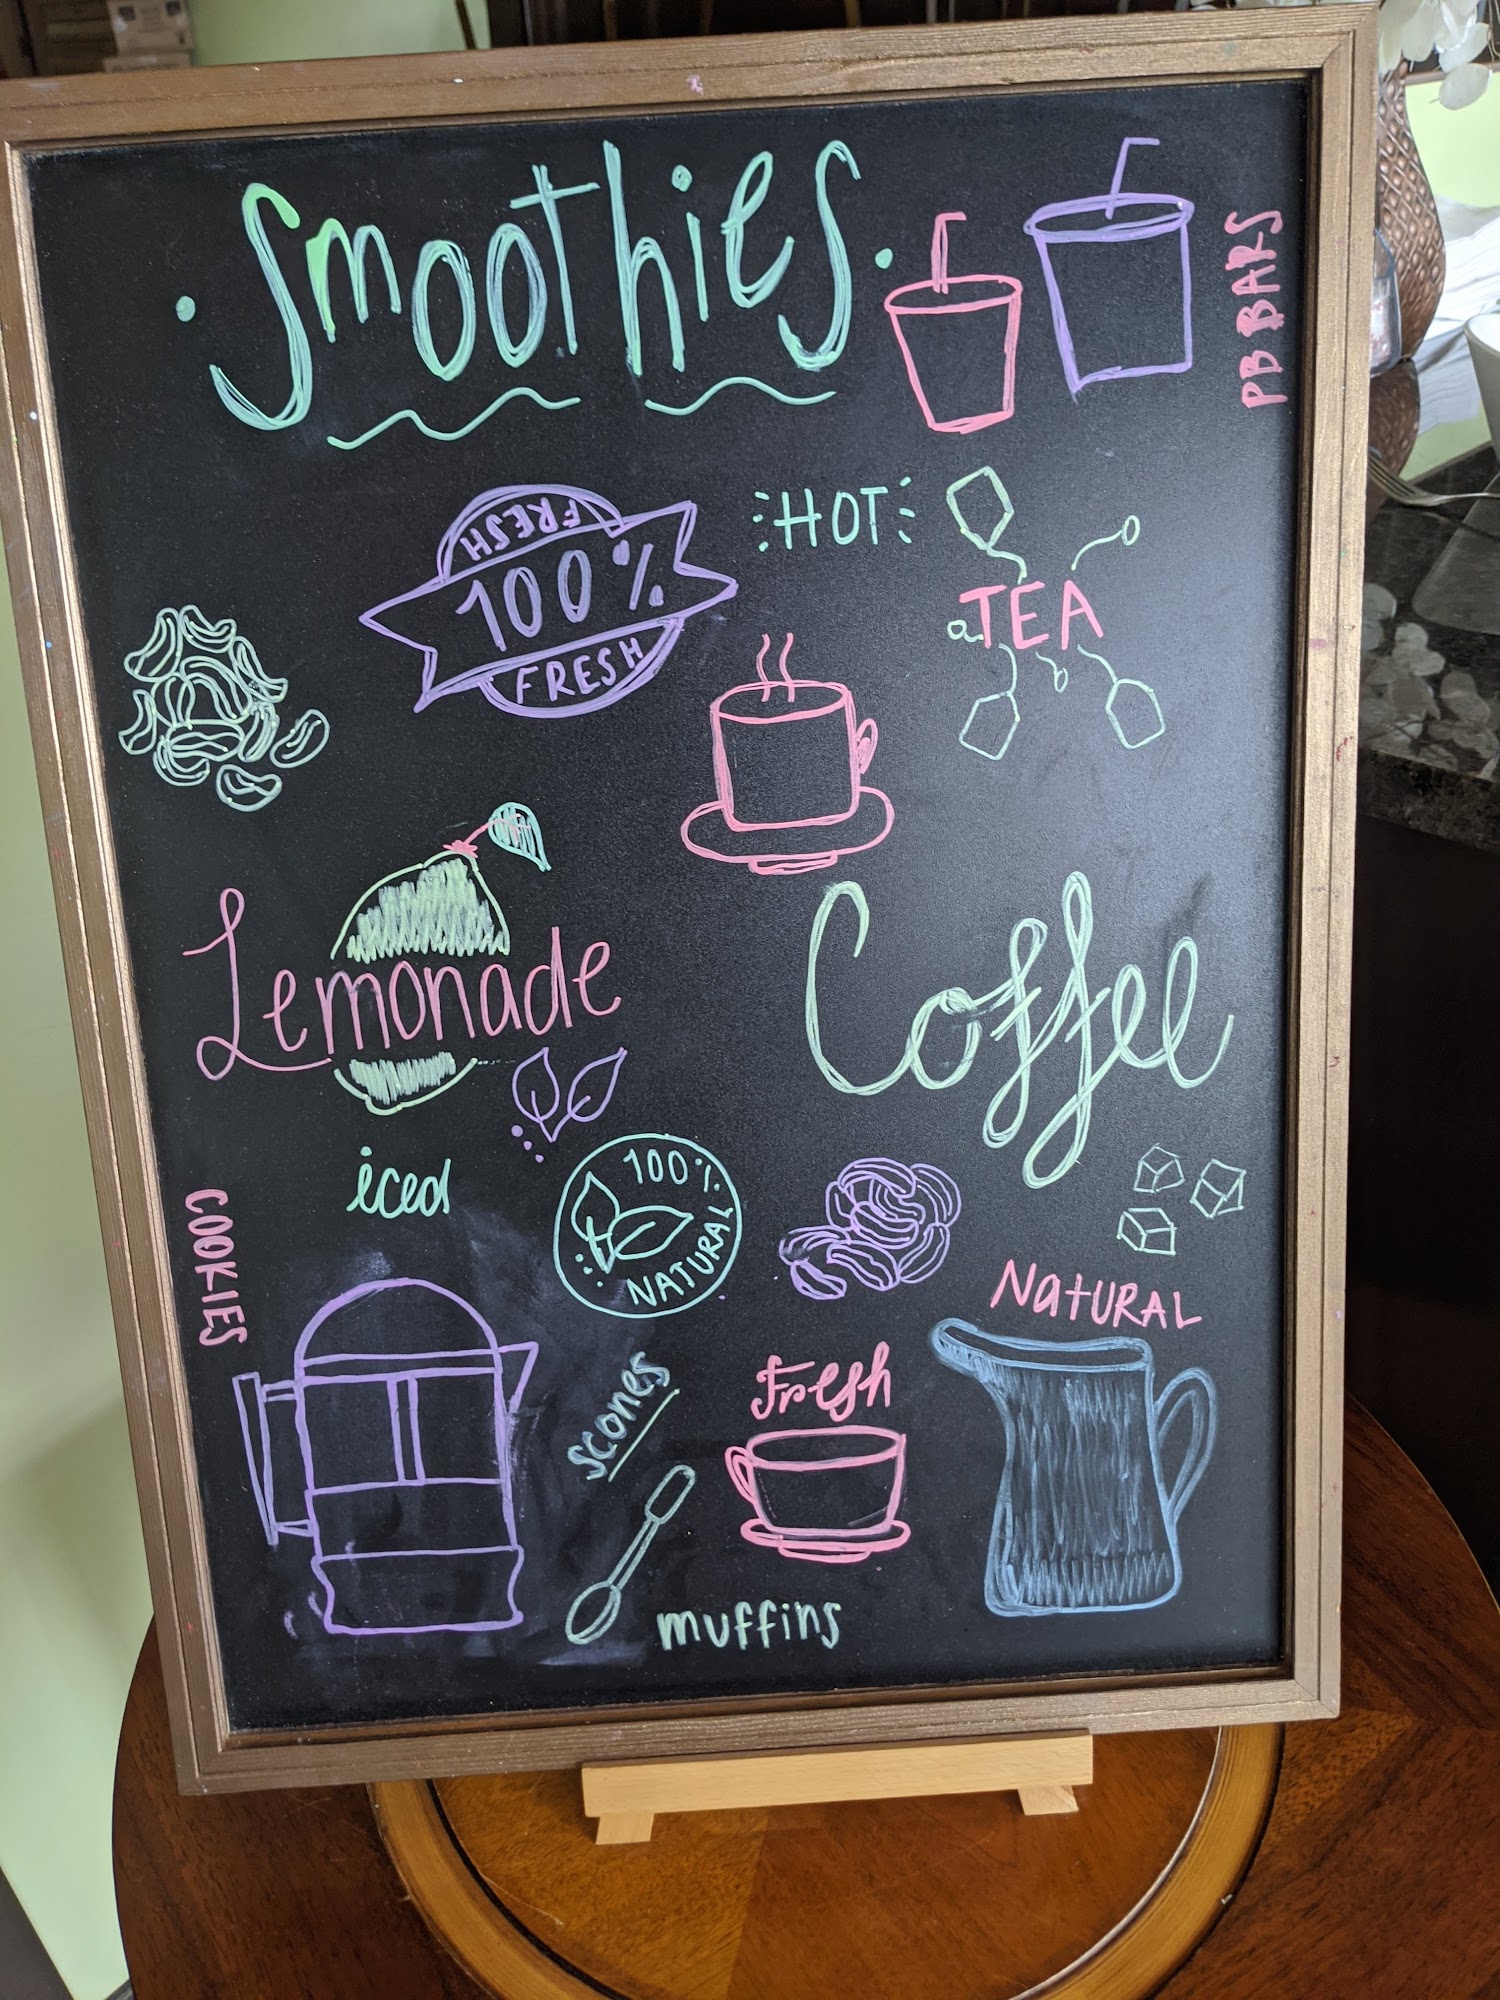 Smoothies
PB BARS
HOT
FRESH
100%
FRESH
TEA
Lemonade
Coffee
iced
100%
NATURAL
COOKIES
NATURAL
scones
Fresh
muffins